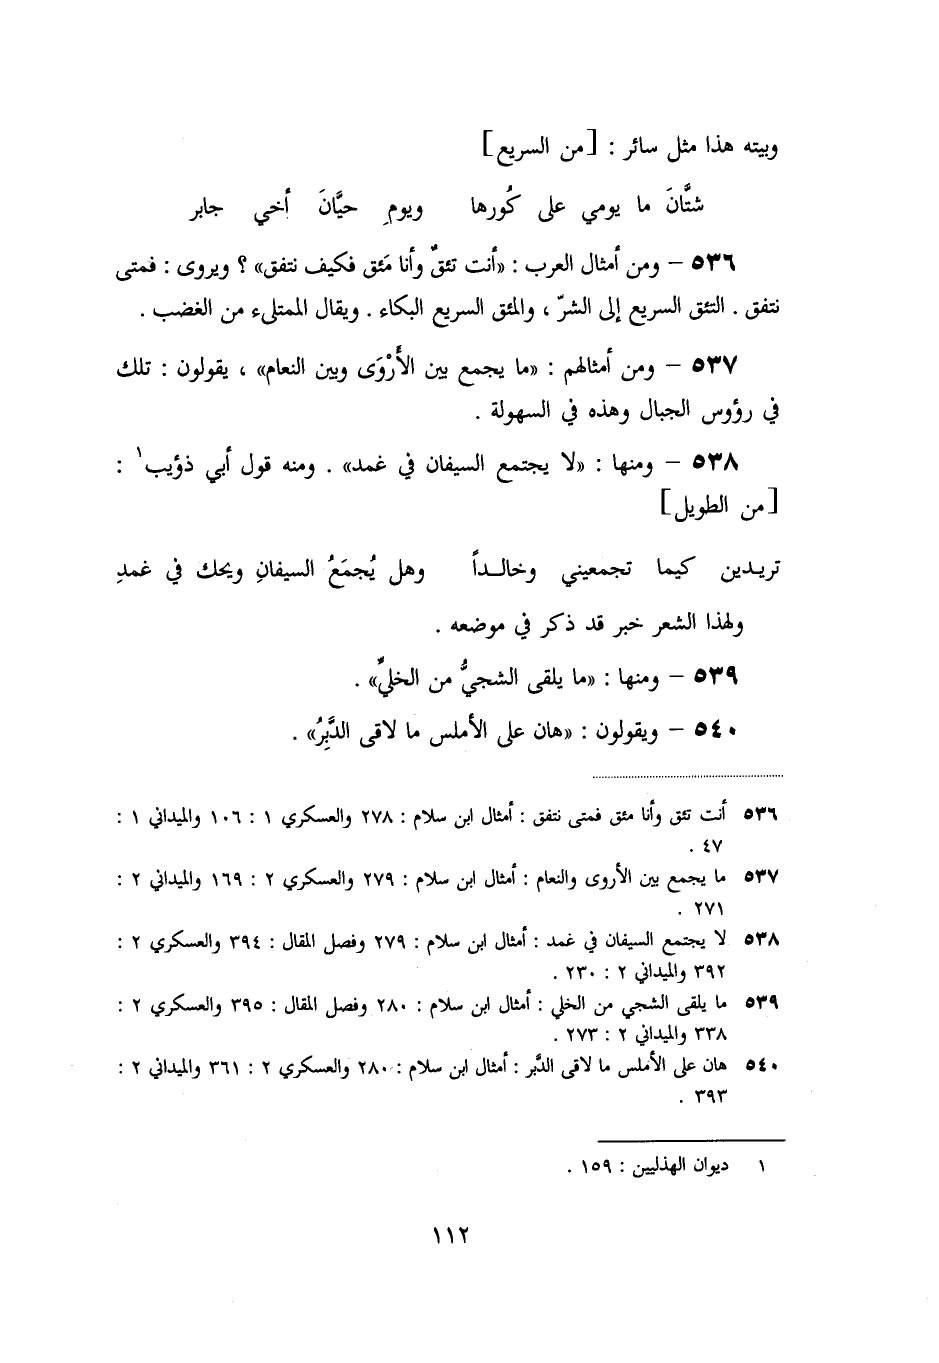 وبيته هذا مثل سائر : [من السريع]
شتَّانَ ما يومي على كُورها ويومِ حيَّانَ أخي جابر
٥٣٦ – ومن أمثال العرب : «أنت تئقٌ وأنا مَئق فكيف نتفق» ؟ ويروى : فمتى
نتفق . التئق السريع إلى الشرّ ، والمئق السريع البكاء . ويقال الممتلىء من الغضب .
٥٣٧ – ومن أمثالهم : «ما يجمع بين الأَرْوَى وبين النعام» ، يقولون : تلك
في رؤوس الجبال وهذه في السهولة .
٥٣٨ – ومنها : «لا يجتمع السيفان في غمد» . ومنه قول أبي ذؤيب١ :
[من الطويل]
تريدين كيما تجمعيني وخالداً وهل يُجمَعُ السيفانِ ويحك في غمدِ
ولهذا الشعر خبر قد ذكر في موضعه .
٥٣٩ – ومنها : «ما يلقى الشجيُّ من الخليِّ» .
٥٤٠ – ويقولون : «هان على الأملس ما لاقى الدَّبِرُ» .
٥٣٦ أنت تئق وأنا مئق فمتى نتفق : أمثال ابن سلام : ٢٧٨ والعسكري ١ : ١٠٦ والميداني ١ :
٤٧ .
٥٣٧ ما يجمع بين الأروى والنعام : أمثال ابن سلام : ٢٧٩ والعسكري ٢ : ١٦٩ والميداني ٢ :
٢٧١ .
٥٣٨ لا يجتمع السيفان في غمد : أمثال ابن سلام : ٢٧٩ وفصل المقال : ٣٩٤ والعسكري ٢ :
٣٩٢ والميداني ٢ : ٢٣٠ .
٥٣٩ ما يلقى الشجي من الخلي : أمثال ابن سلام : ٢٨٠ وفصل المقال : ٣٩٥ والعسكري ٢ :
٣٣٨ والميداني ٢ : ٢٧٣ .
٥٤٠ هان على الأملس ما لاقى الدَّبر : أمثال ابن سلام : ٢٨٠ والعسكري ٢ : ٣٦١ والميداني ٢ :
٣٩٣ .
١ ديوان الهذليين : ١٥٩ .
١١٢